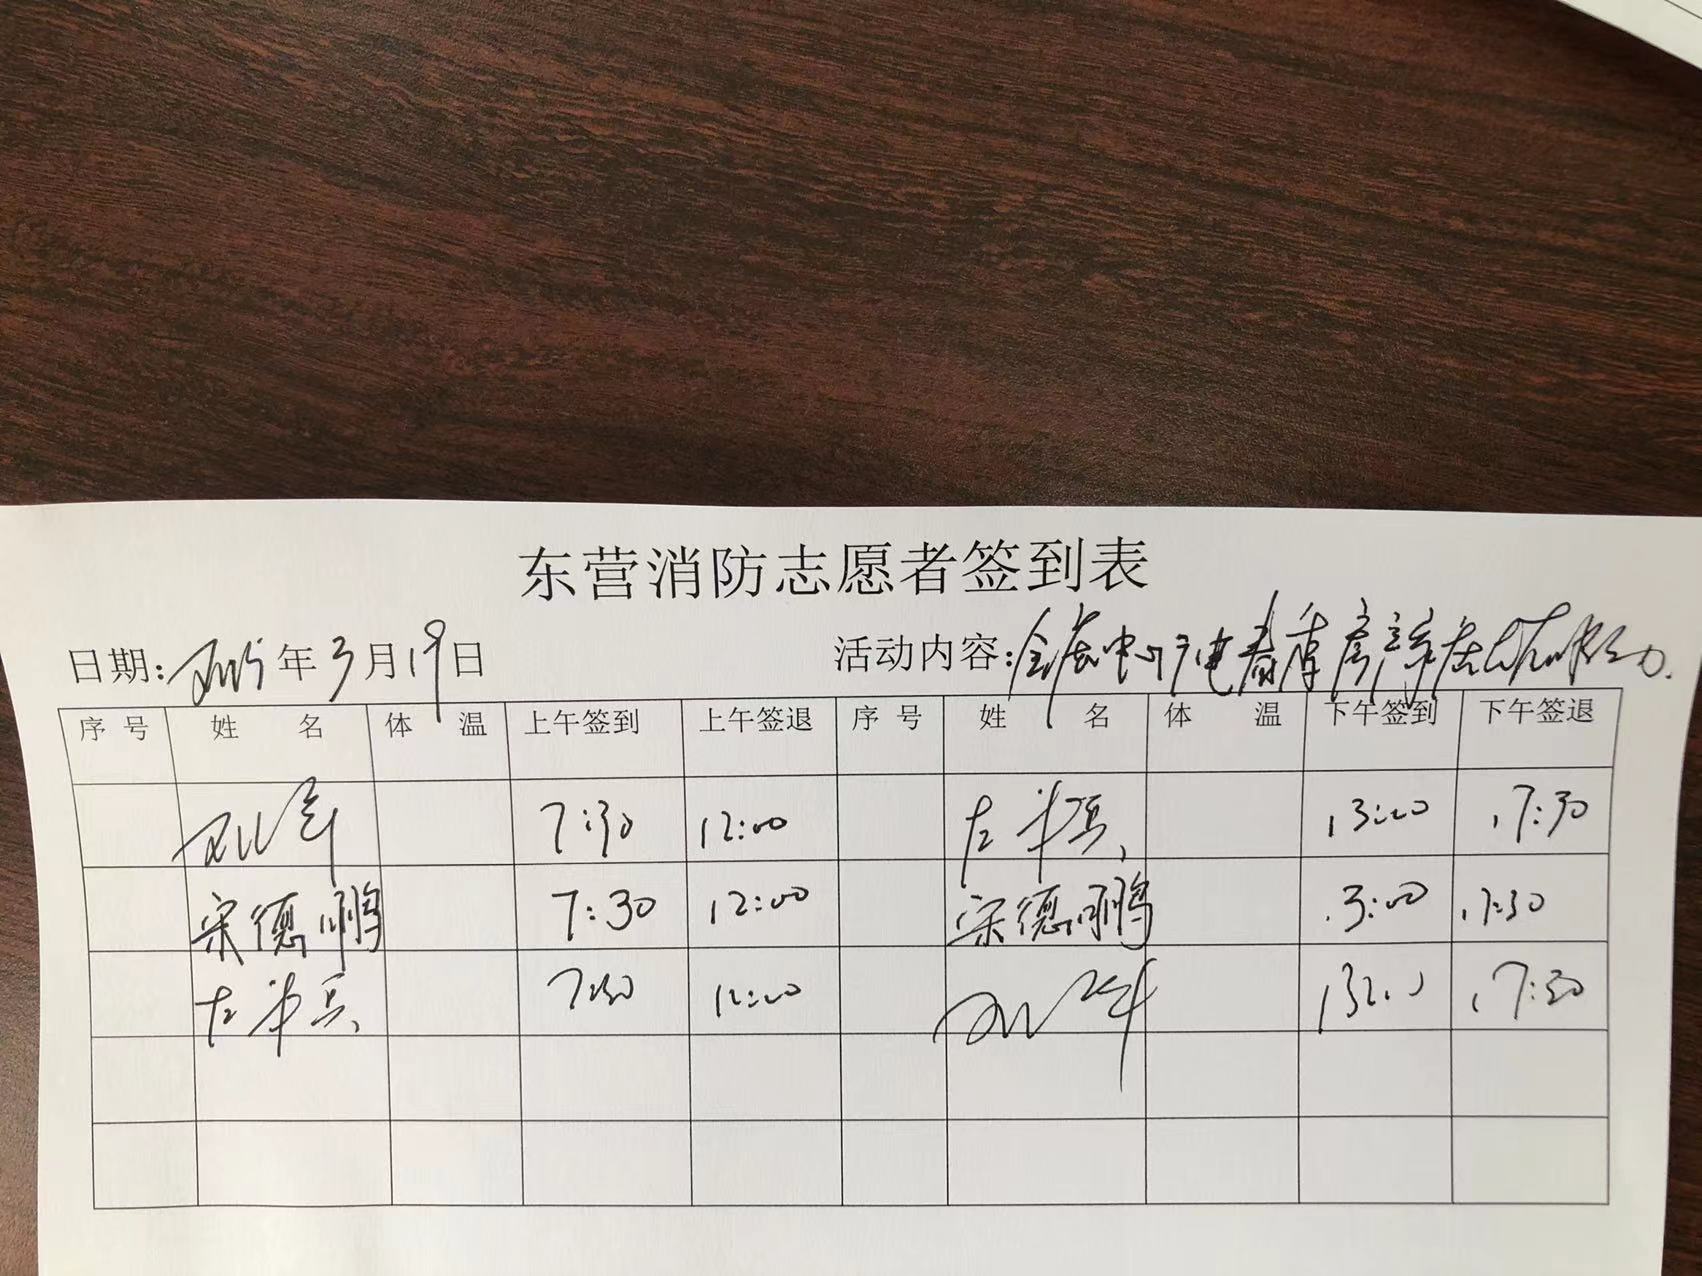 东营消防志愿者签到表
日期: 年3月19日 活动内容:会展中心广电春季房
序号 姓名 体温 上午签到 上午签退 序号 姓名 体温 下午签到 下午签退
7:30 12:00 左 兵 13:00 17:30
宋德鹏 7:30 12:00 宋德鹏 13:00 17:30
左 兵 7:30 12:00 13:00 17:30